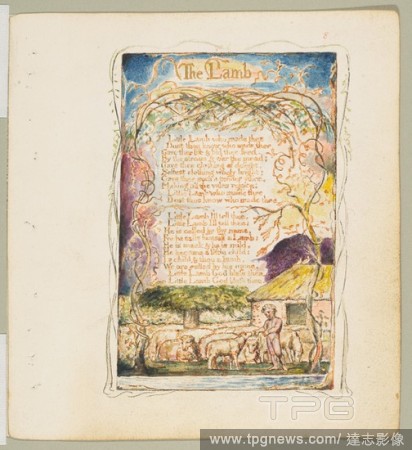 The Lamb
Little Lamb who made thee
Dost thou know who made thee
Gave thee life & bid thee feed.
By the stream & o'er the mead;
Gave thee clothing of delight,
Softest clothing wooly bright;
Gave thee such a tender voice,
Making all the vales rejoice:
Little Lamb who made thee
Dost thou know who made thee
Little Lamb I'll tell thee,
Little Lamb I'll tell thee;
He is called by thy name,
For he calls himself a Lamb:
He is meek & he is mild,
He became a little child:
I a child & thou a lamb,
We are called by his name.
Little Lamb God bless thee.
Little Lamb God bless thee.
TPG
www.tpgnews.com/ 達志影像